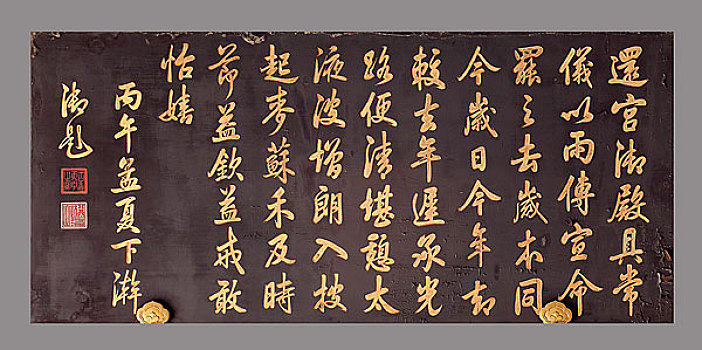 還宮御殿具常
儀以雨傳宣命
罷之去歲本同
今歲日今年却
較去年遲承光
路便清堪憩太
液波增朗入披
起麥蘇禾及時
節益欽益戒敢
怡嬉
丙午孟夏下澣
御題